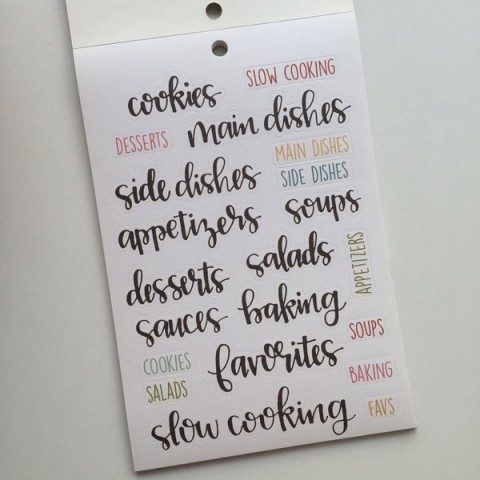 SLOW COOKING
cookies
main dishes
DESSERTS
MAIN DISHES
side dishes
SIDE DISHES
soups
appetizers
APPETIZERS
salads
desserts
baking
sauces
SOUPS
favorites
COOKIES
BAKING
SALADS
slow cooking
FAVS